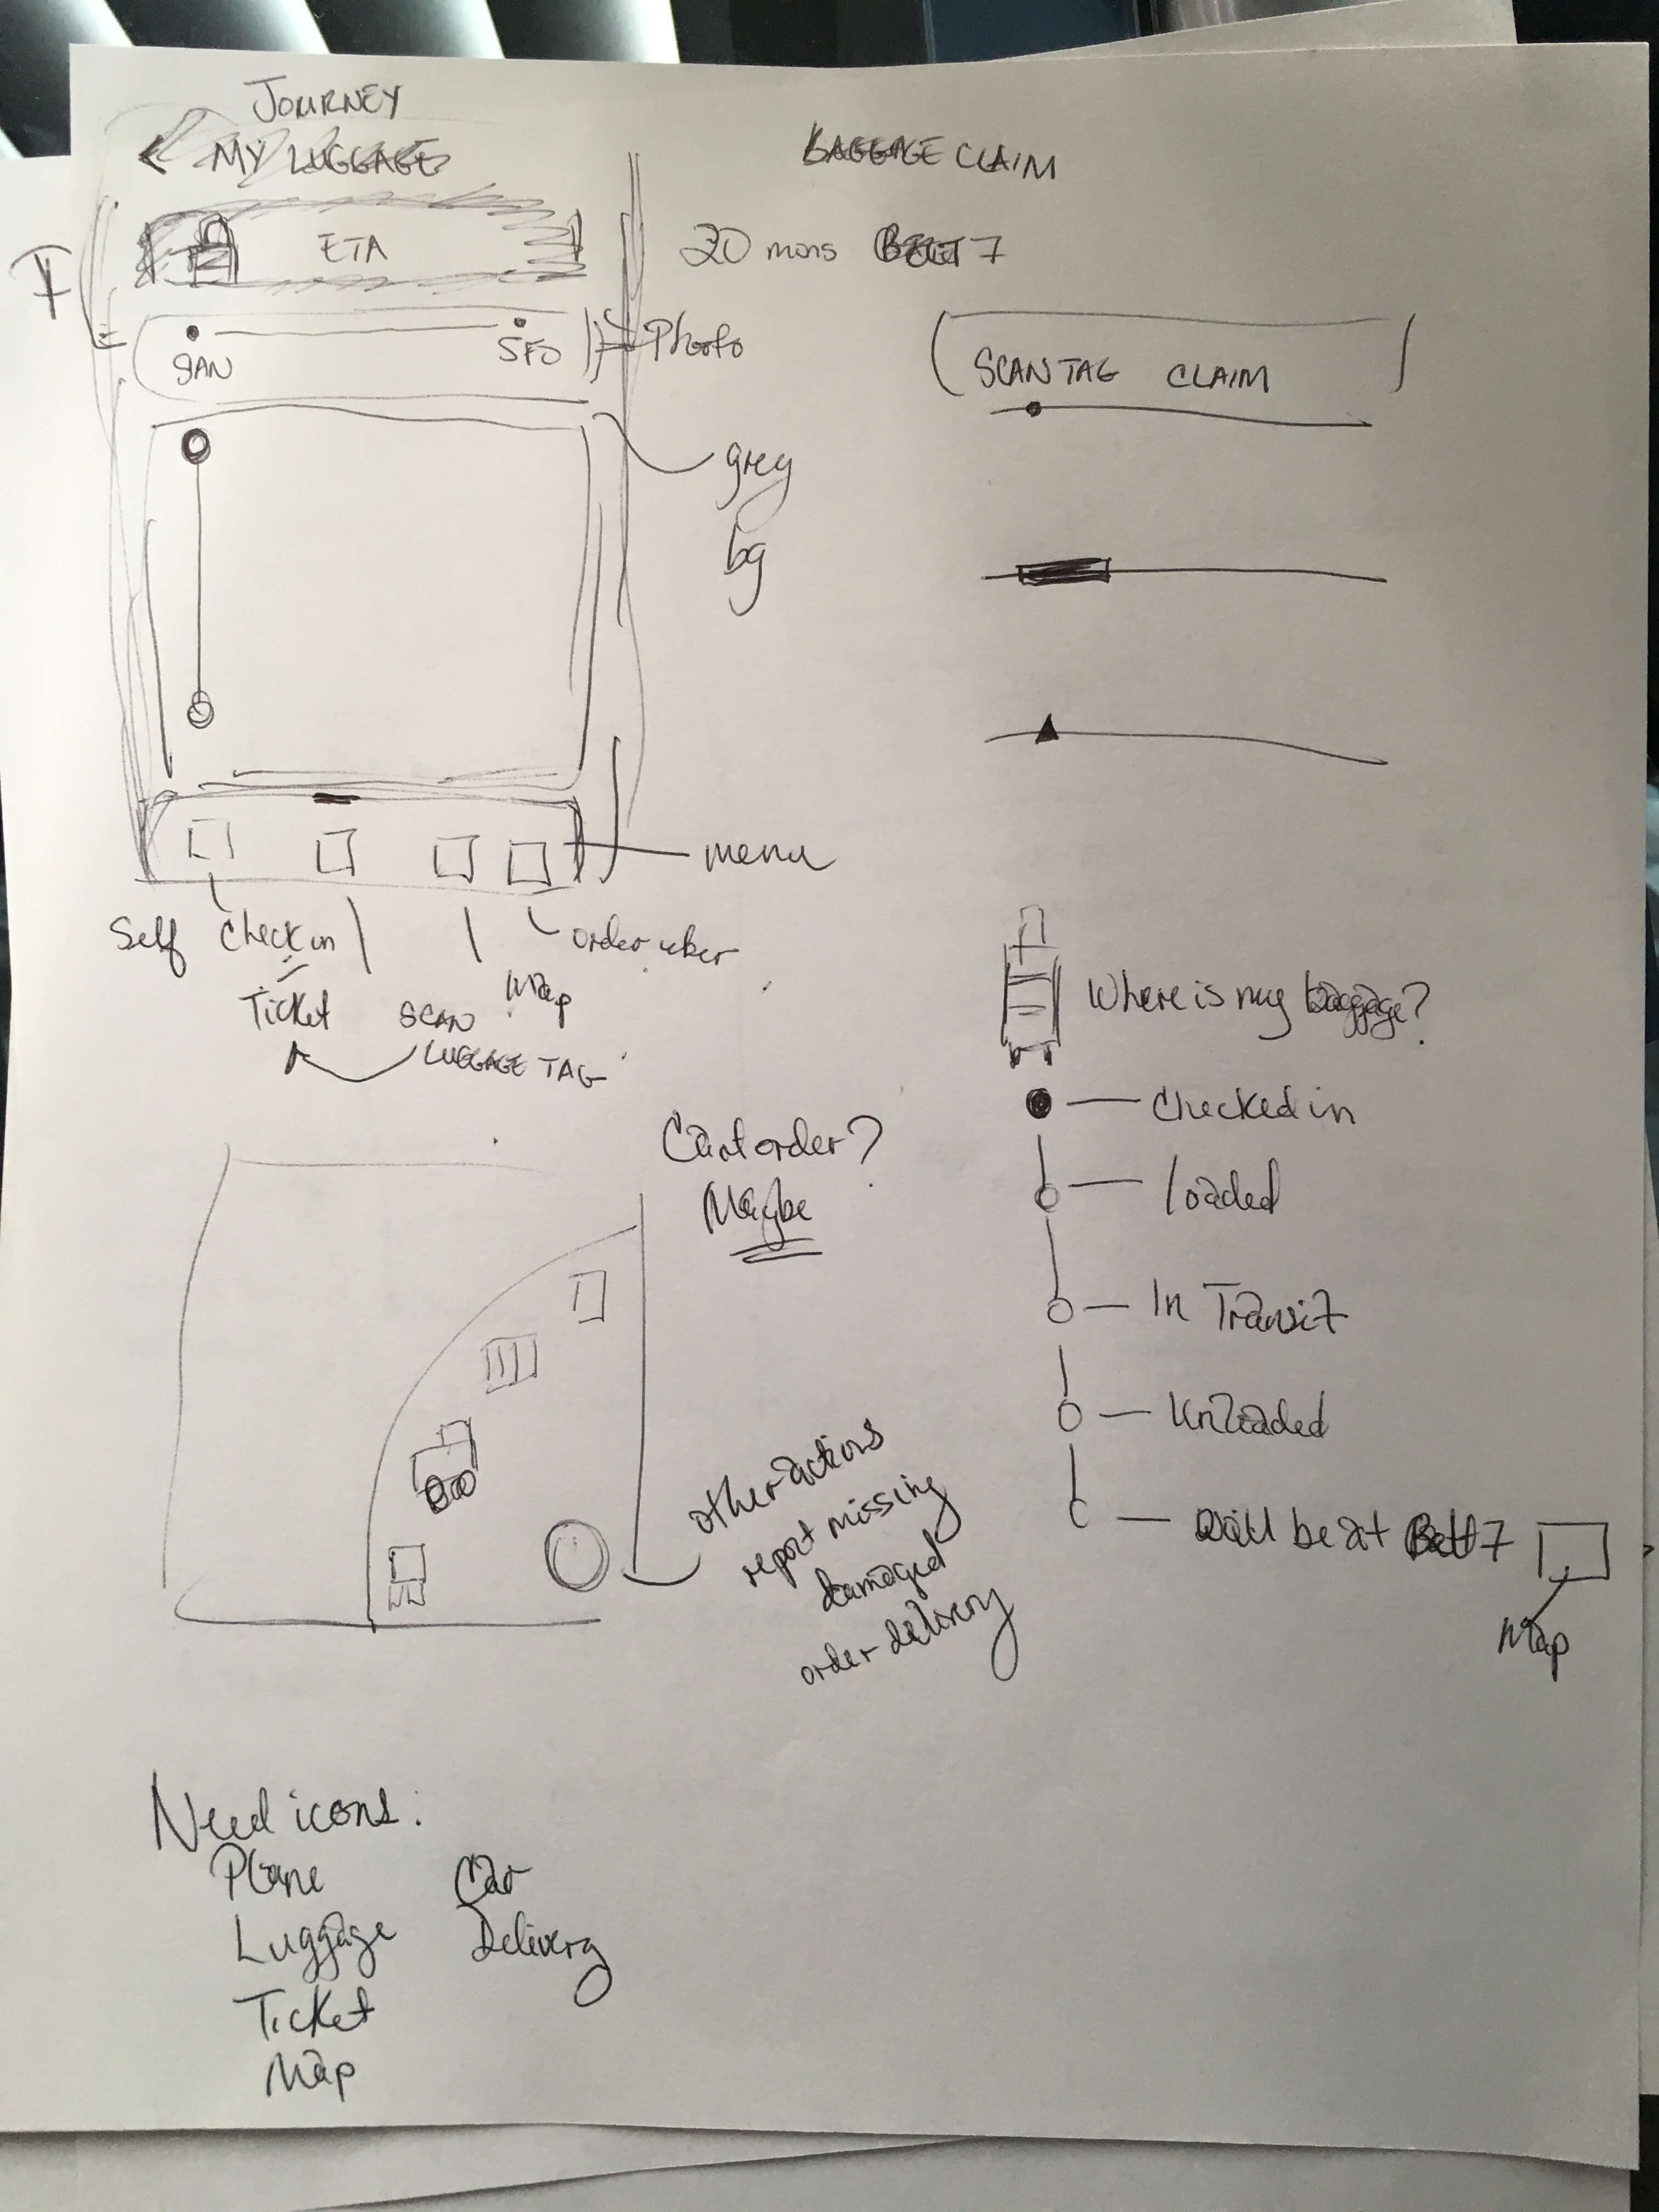 JOURNEY
MY LUGGAGE
ETA
SAN
SFO
Photo
grey
bg
menu
Self
Check in
Ticket
SCAN
LUGGAGE TAG
Map
order uber
BAGGAGE CLAIM
20 mins BELT 7
SCAN TAG CLAIM
Where is my baggage?
Checked in
loaded
In Transit
Unloaded
Will be at Belt 7
Map
order?
Maybe
other actions
report missing
damaged
order delivery
Need icons:
Plane
Car
Luggage
Delivery
Ticket
Map